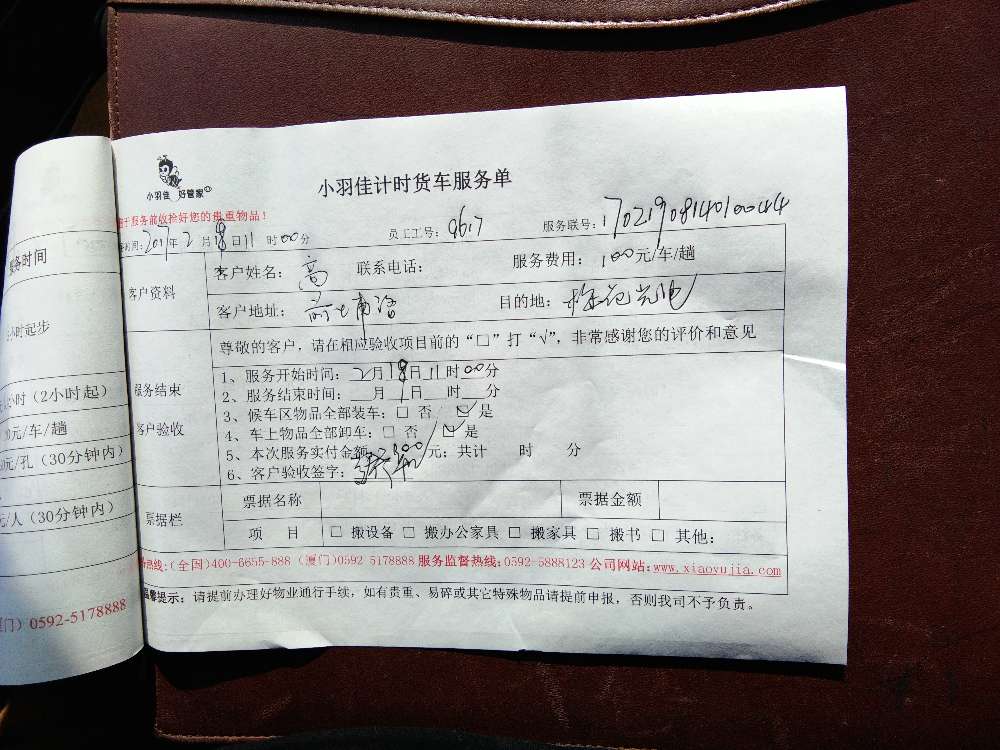 小羽佳 好管家
小羽佳计时货车服务单
于服务前收捡好您的贵重物品！
时间：2017年2月18日11时00分 员工工号：9617 服务联号：1702190814010044
客户资料
客户姓名：高 联系电话： 服务费用：100元/车/趟
客户地址： 目的地：
尊敬的客户，请在相应验收项目前的“□”打“√”，非常感谢您的评价和意见
服务结束
客户验收
1、服务开始时间：2月18日11时00分
2、服务结束时间：__月__日__时__分
3、候车区物品全部装车：□ 否 ☑是
4、车上物品全部卸车：□ 否 ☑是
5、本次服务实付金额：元；共计 时 分
6、客户验收签字：
票据栏
票据名称 票据金额
项 目 □ 搬设备 □ 搬办公家具 □ 搬家具 □ 搬书 □ 其他：
热线：（全国）400-6655-888（厦门）0592 5178888 服务监督热线：0592-5888123 公司网站：www.xiaoyujia.com
温馨提示：请提前办理好物业通行手续，如有贵重、易碎或其它特殊物品请提前申报，否则我司不予负责。
服务时间
小时起步
小时（2小时起）
元/车/趟
元/孔（30分钟内）
元/人（30分钟内）
门）0592-5178888